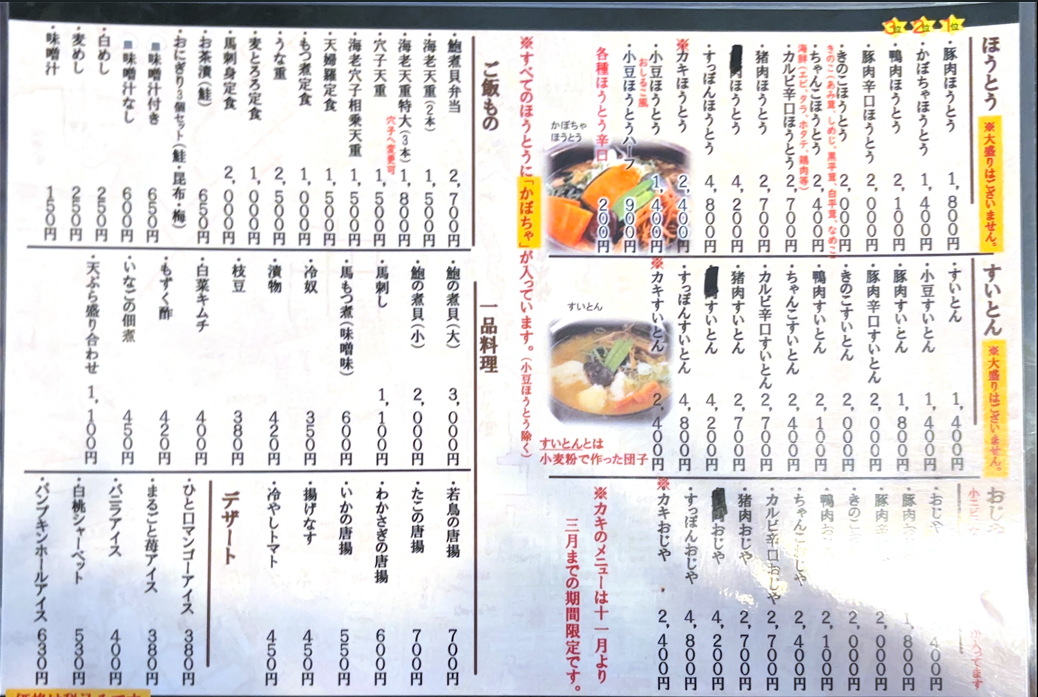 ほうとう
※大盛りはございません。
3位 2位 1位
・豚肉ほうとう 1,800円
・かぼちゃほうとう 1,400円
・鴨肉ほうとう 2,100円
・豚肉辛口ほうとう 2,000円
・きのこほうとう 2,000円
きのこ(あみ茸、しめじ、黒平茸、白平茸、なめこ)
・ちゃんこほうとう 2,400円
海鮮(エビ、タラ、ホタテ、鶏肉等)
・カルビ辛口ほうとう 2,700円
・猪肉ほうとう 2,700円
肉ほうとう 4,200円
・すっぽんほうとう 4,800円
※カキほうとう 2,400円
・小豆ほうとう 1,400円
おしるこ風
・小豆ほうとうハーフ 900円
各種ほうとう辛口 200円
かぼちゃ
ほうとう
すいとん
※大盛りはございません。
・すいとん 1,400円
・小豆すいとん 1,400円
・豚肉すいとん 1,800円
・豚肉辛口すいとん 2,000円
・きのこすいとん 2,000円
・鴨肉すいとん 2,100円
・ちゃんこすいとん 2,400円
・カルビ辛口すいとん 2,700円
・猪肉すいとん 2,700円
すいとん 4,200円
・すっぽんすいとん 4,800円
※カキすいとん 2,400円
すいとん
すいとんとは
小麦粉で作った団子
おじや
入ってます
・おじや 400円
・豚肉 1,800円
・豚肉 2,000円
・きのこ 2,000円
・鴨肉お 2,100円
・ちゃんこおじや 2,400円
・カルビ辛口おじや 2,700円
・猪肉おじや 2,700円
肉おじや 4,200円
・すっぽんおじや 4,800円
※カキおじや 2,400円
※カキのメニューは十一月より
三月までの期間限定です。
※すべてのほうとうに「かぼちゃ」が入っています。(小豆ほうとう除く)
ご飯もの
・鮑煮貝弁当 2,700円
・海老天重(2本) 1,500円
・海老天重特大(3本) 1,800円
・穴子天重 1,500円
穴子変更可
・海老穴子相乗天重 1,500円
・天婦羅定食 1,500円
・もつ煮定食 1,000円
・うな重 2,500円
・麦とろろ定食 1,000円
・馬刺身定食 2,000円
・お茶漬(鮭) 650円
・おにぎり3個セット(鮭・昆布・梅)
味噌汁付き 650円
味噌汁なし 600円
・白めし 250円
・麦めし 250円
・味噌汁 150円
一品料理
・鮑の煮貝(大) 3,000円
・鮑の煮貝(小) 2,000円
・馬刺し 1,100円
・馬もつ煮(味噌味) 600円
・冷奴 350円
・漬物 420円
・枝豆 380円
・白菜キムチ 400円
・もずく酢 420円
・いなごの佃煮 450円
・天ぷら盛り合わせ 1,100円
・若鳥の唐揚 700円
・たこの唐揚 700円
・わかさぎの唐揚 600円
・いかの唐揚 550円
・揚げなす 450円
・冷やしトマト 450円
デザート
・ひと口マンゴーアイス 380円
・まるごと苺アイス 380円
・バニラアイス 400円
・白桃シャーベット 530円
・パンプキンホールアイス 630円